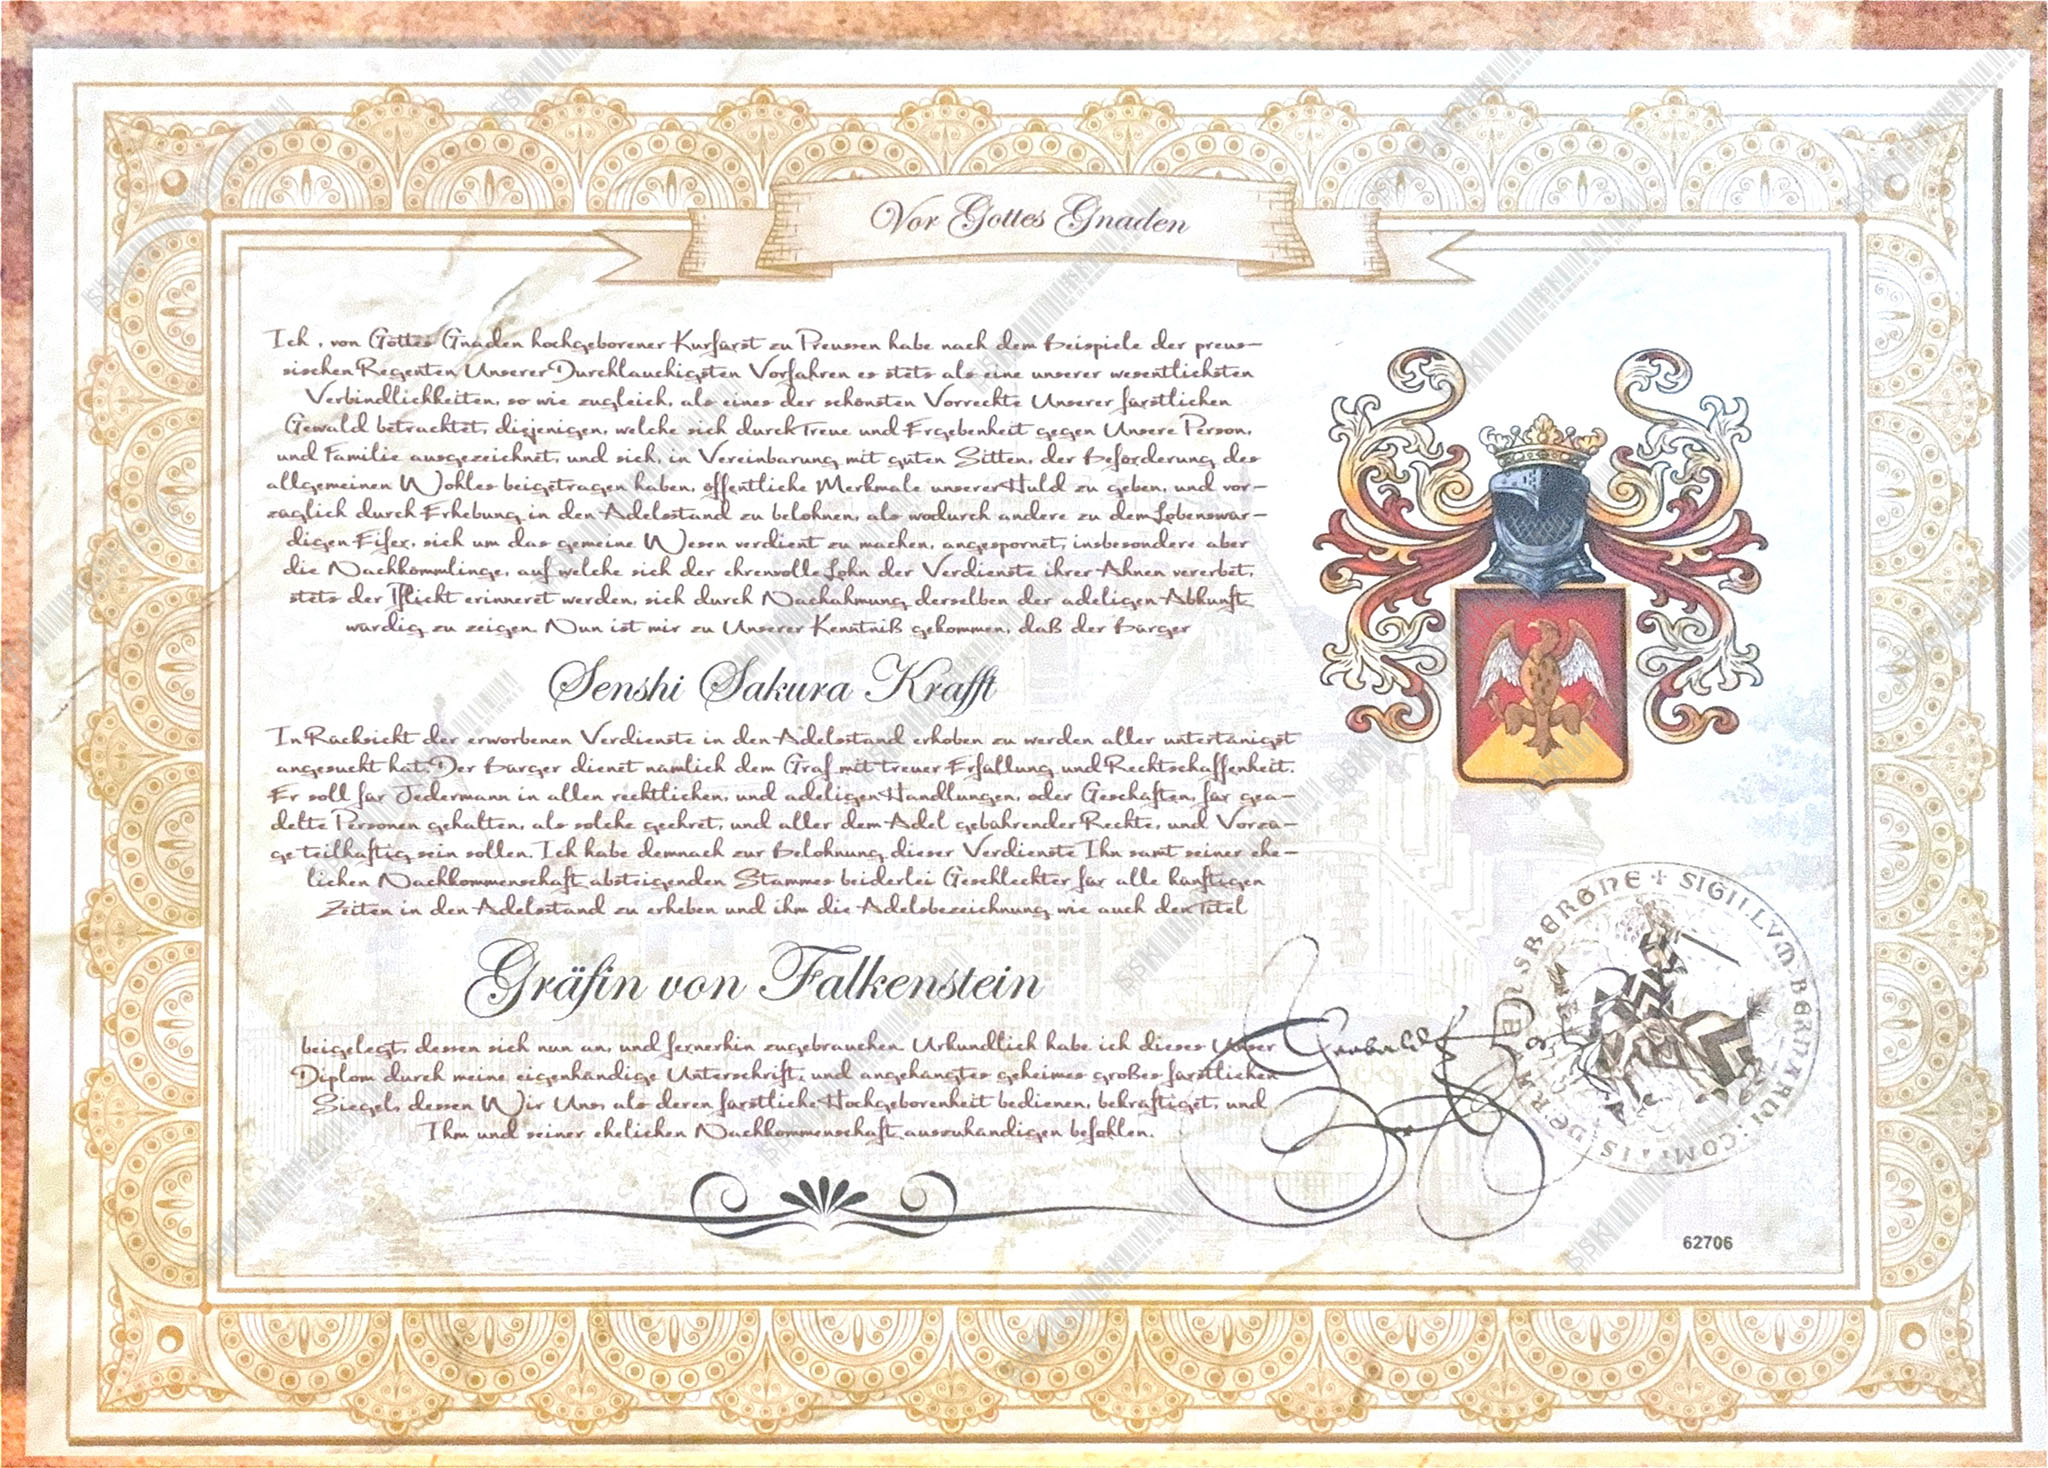 Vor Gottes Gnaden
Ich, von Gottes Gnaden hochgeborener Kurfürst zu Preussen habe nach dem Beispiele der preus-
sischen Regenten Unserer Durchlauchigsten Vorfahren es stets als eine unserer wesentlichsten
Verbindlichkeiten, so wie zugleich, als eines der schönsten Vorrechte Unserer fürstlichen
Gewald betrachtet, diejenigen, welche sich durch Treue und Ergebenheit gegen Unsere Person,
und Familie ausgezeichnet, und sich, in Vereinbarung mit guten Sitten, der Beförderung des
allgemeinen Wohles beigetragen haben, öffentliche Merkmale unserer Huld zu geben, und vor-
züglich durch Erhebung in den Adelsstand zu belohnen, als wodurch andere zu dem Lobenswür-
digen Eifer, sich um das gemeine Wesen verdient zu machen, angespornet, insbesondere aber
die Nachkömmlinge, auf welche sich der ehrenvolle Lohn der Verdienste ihrer Ahnen vererbet,
stets der Pflicht erinneret werden, sich durch Nachahmung derselben der adeligen Abkunft
würdig zu zeigen. Nun ist mir zu Unserer Kenntniß gekommen, daß der Bürger
Senshi Sakura Krafft
In Rücksicht der erworbenen Verdienste in den Adelsstand erhoben zu werden aller untertänigst
angesucht hat. Der Bürger dienet nämlich dem Graf mit treuer Erfüllung und Rechtschaffenheit.
Er soll für Jedermann in allen rechtlichen, und adeligen Handlungen, oder Geschäften, für gea-
delte Personen gehalten, als solche geehret, und aller dem Adel gebührender Rechte, und Vorzü-
ge teilhaftig sein sollen. Ich habe demnach zur Belohnung dieser Verdienste Ihn samt seiner ehe-
lichen Nachkommenschaft absteigenden Stammes beiderlei Geschlechter für alle künftigen
Zeiten in den Adelsstand zu erheben und ihm die Adelsbezeichnung wie auch den Titel
Gräfin von Falkenstein
beigelegt, dessen sich nun an, und fernerhin zugebrauchen. Urkundlich habe ich dieses Unser
Diplom durch meine eigenhändige Unterschrift, und angehängtes geheimes großes fürstlichen
Siegel, dessen Wir Uns, als deren fürstliche Hochgeborenheit bedienen, bekräftiget, und
Ihm und seiner ehelichen Nachkommenschaft auszuhändigen befohlen.
SIGILLVM BERNARDI COMITIS DE
62706